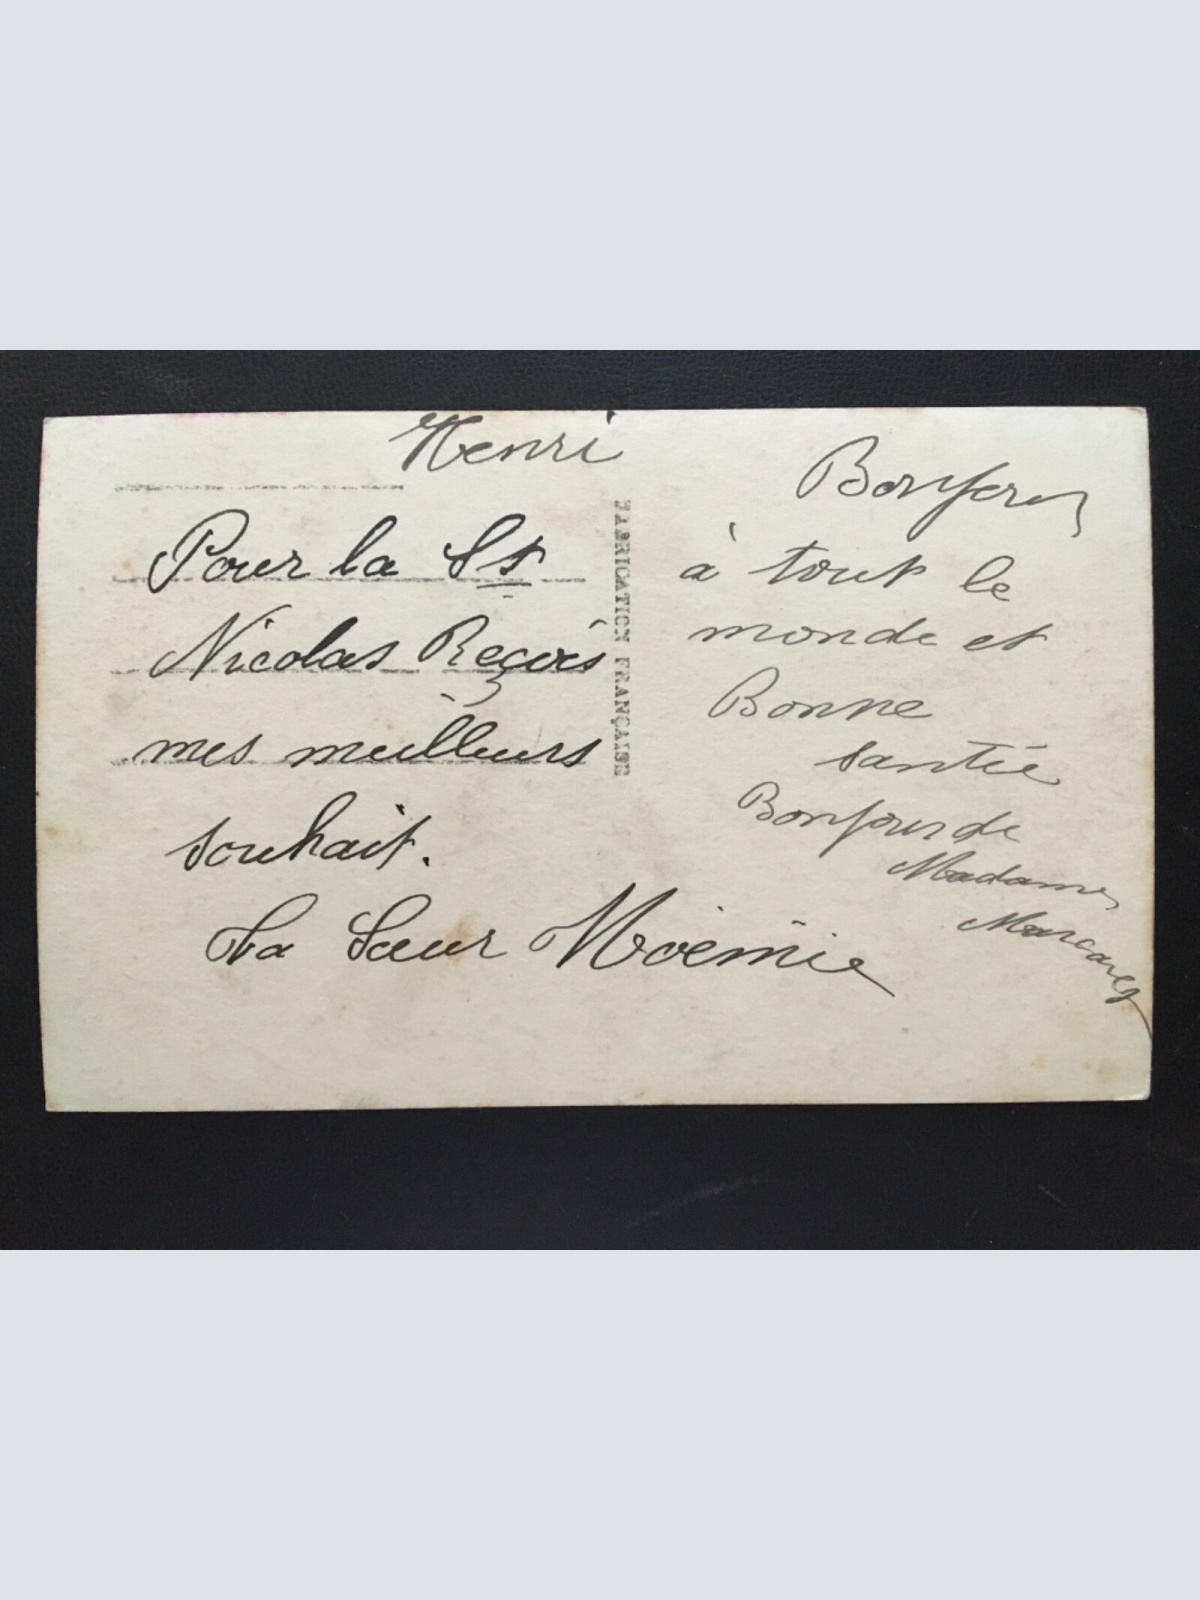 Henri
Pour la St
Nicolas Reçois
mes meilleurs
souhait.
Ta Sœur Noëmie
FABRICATION FRANÇAISE
Bonjour
à tout le
monde et
Bonne
santée
Bonjour de
Madame